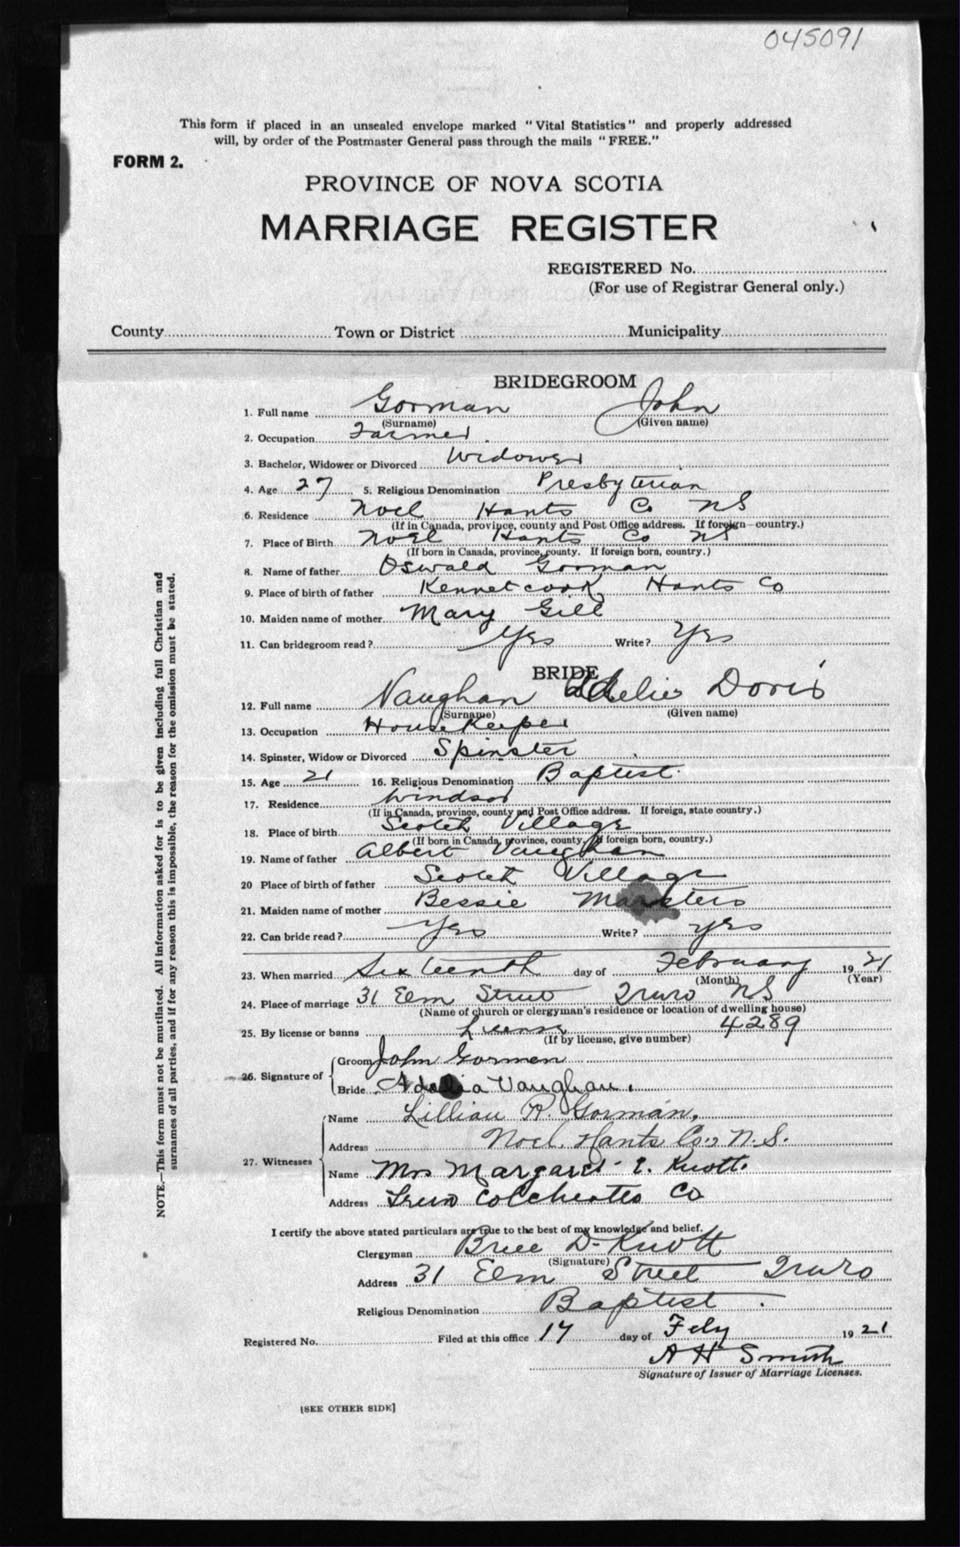 045091
This form if placed in an unsealed envelope marked "Vital Statistics" and properly addressed
will, by order of the Postmaster General pass through the mails "FREE."
FORM 2.
PROVINCE OF NOVA SCOTIA
MARRIAGE REGISTER
REGISTERED No.
(For use of Registrar General only.)
County Town or District Municipality
BRIDEGROOM
1. Full name Gorman John
(Surname) (Given name)
2. Occupation Farmer
3. Bachelor, Widower or Divorced Widower
4. Age 27 5. Religious Denomination Presbyterian
6. Residence Noel Hants Co NS
(If in Canada, province, county and Post Office address. If foreign—country.)
7. Place of Birth Noel Hants Co NS
(If born in Canada, province, county. If foreign born, country.)
8. Name of father Oswald Gorman
9. Place of birth of father Kennetcook Hants Co
10. Maiden name of mother Mary Gill
11. Can bridegroom read? Yes Write? Yes
BRIDE
12. Full name Vaughan Doris
(Surname) (Given name)
13. Occupation House Keeper
14. Spinster, Widow or Divorced Spinster
15. Age 21 16. Religious Denomination Baptist.
17. Residence Windsor
(If in Canada, province, county and Post Office address. If foreign, state country.)
18. Place of birth Scotch Village
(If born in Canada, province, county. If foreign born, country.)
19. Name of father Albert Vaughan
20 Place of birth of father Scotch Village
21. Maiden name of mother Bessie Marsters
22. Can bride read? Yes Write? yes
23. When married Sixteenth day of February 19 21
(Month) (Year)
24. Place of marriage 31 Elm Street Truro NS
(Name of church or clergyman's residence or location of dwelling house)
25. By license or banns License 4289
(If by license, give number)
26. Signature of Groom John Gorman
Bride Adelia Vaughan.
27. Witnesses
Name Lillian R. Gorman.
Address Noel. Hants Co., N.S.
Name Mrs Margaret Knott.
Address Truro Colchester Co
I certify the above stated particulars are true to the best of my knowledge and belief.
Clergyman D. Knott
(Signature)
Address 31 Elm Street Truro
Religious Denomination Baptist.
Registered No. Filed at this office 17 day of Feby 19 21
A H Smith
Signature of Issuer of Marriage Licenses.
[SEE OTHER SIDE]
NOTE.—This form must not be mutilated. All information asked for is to be given including full Christian and
surnames of all parties, and if for any reason this is impossible, the reason for the omission must be stated.